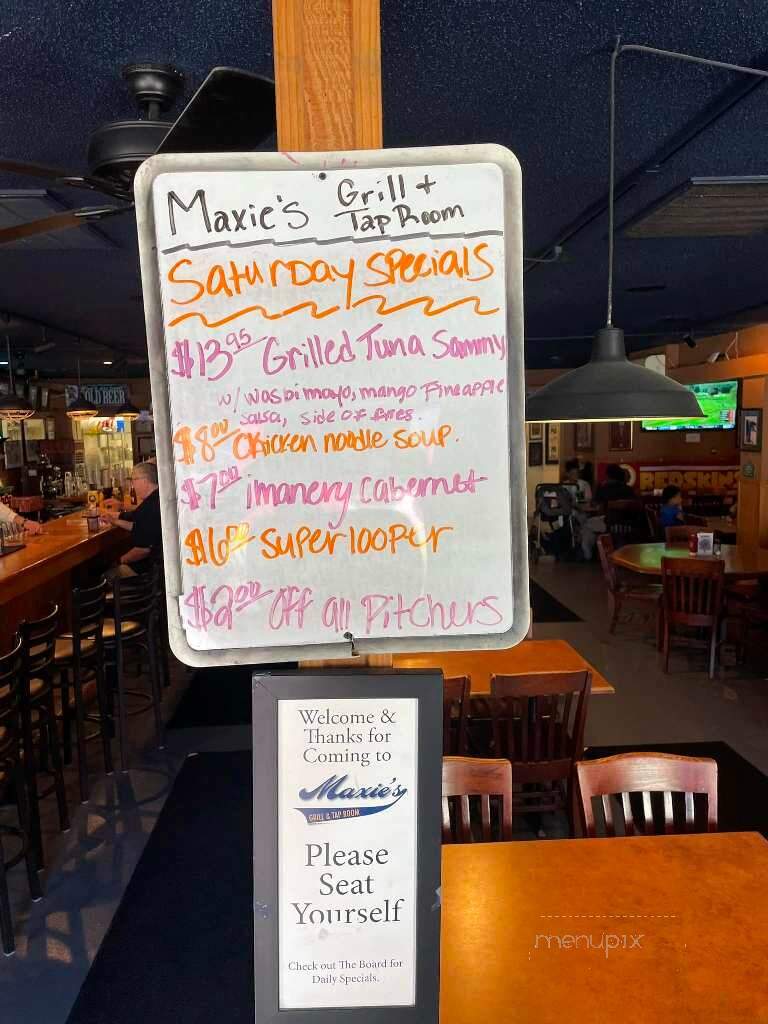 Maxie's Grill +
Tap Room
Saturday Specials
$13.95 Grilled Tuna Sammy
w/ wasbi mayo, mango Pineapple
salsa, side of fires.
$8.00 Chicken noodle soup.
$7.00 imanery cabernet
$6.00 Super looper
$2.00 Off all Pitchers
Welcome &
Thanks for
Coming to
Maxie's
GRILL & TAP ROOM
Please
Seat
Yourself
Check out The Board for
Daily Specials.
OLD BEER
REDSKINS
menupix